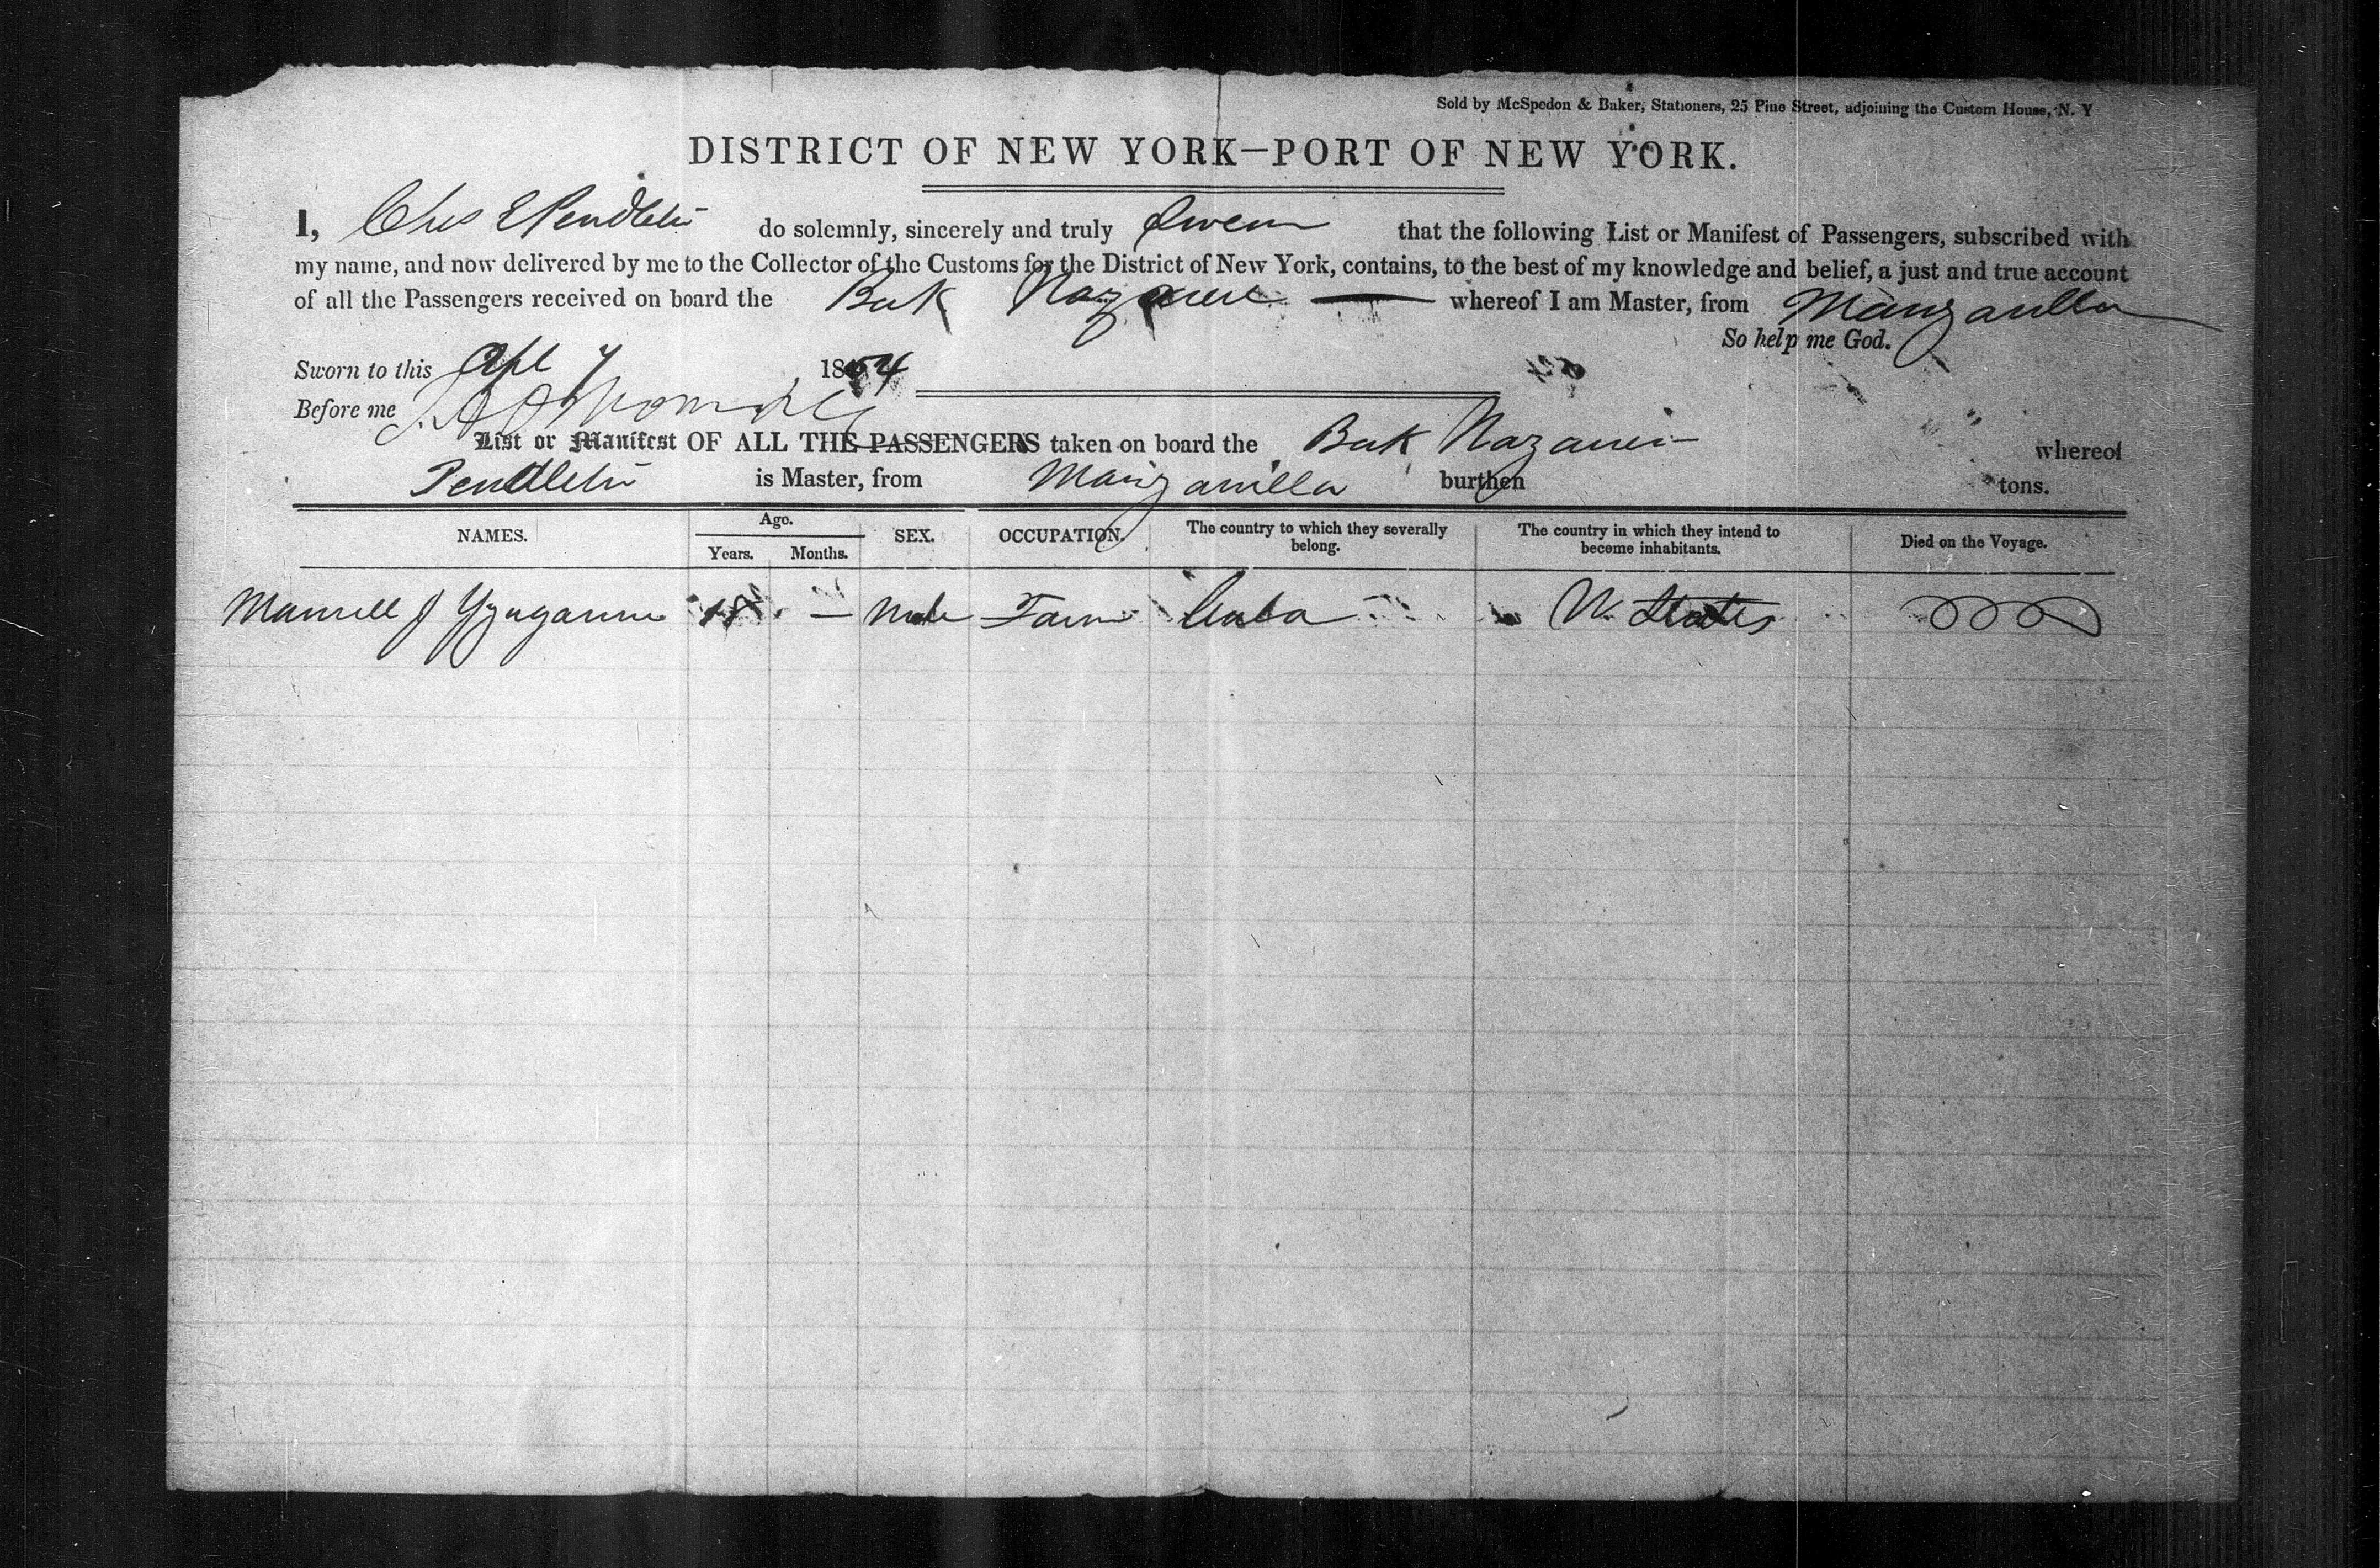 Sold by McSpedon & Baker, Stationers, 25 Pine Street, adjoining the Custom House, N. Y
DISTRICT OF NEW YORK—PORT OF NEW YORK.
I, Chs E Pendleton do solemnly, sincerely and truly Swear that the following List or Manifest of Passengers, subscribed with
my name, and now delivered by me to the Collector of the Customs for the District of New York, contains, to the best of my knowledge and belief, a just and true account
of all the Passengers received on board the Bark — whereof I am Master, from Manzanilla
So help me God.
Sworn to this Apl 7 1854
Before me
List or Manifest OF ALL THE PASSENGERS taken on board the Bark whereof
Pendleton is Master, from Manzanilla burthen tons.
NAMES. Age. SEX. OCCUPATION. The country to which they severally belong. The country in which they intend to become inhabitants. Died on the Voyage.
Years. Months.
Manuell J — Male Farm Cuba U. States